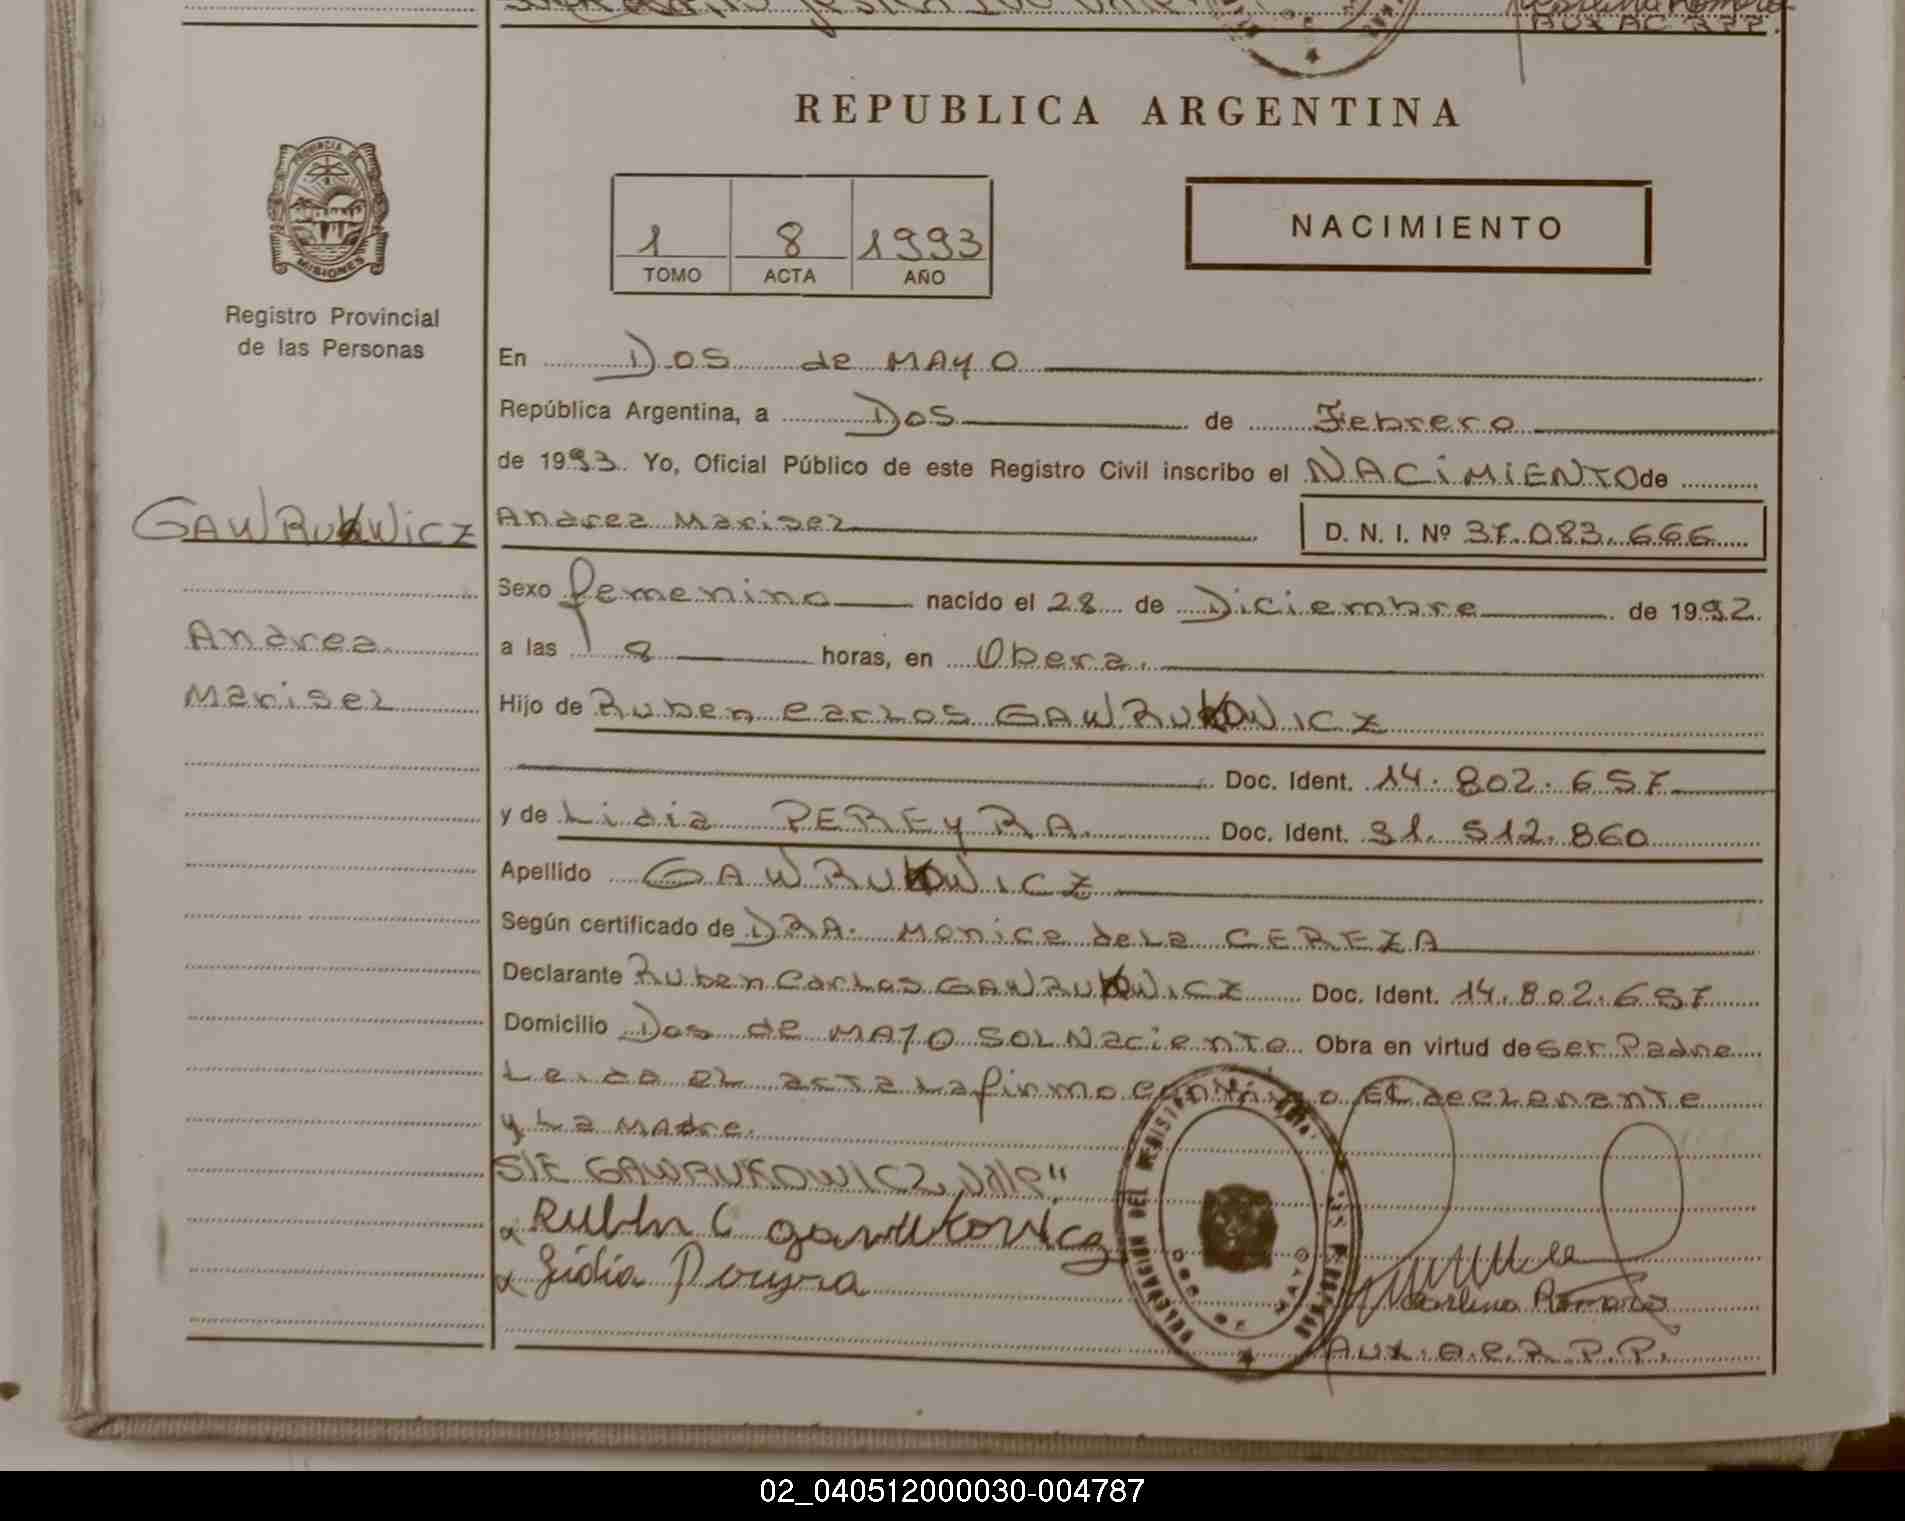 REPUBLICA ARGENTINA
PROVINCIA DE
MISIONES
Registro Provincial
de las Personas
1 8 1993
TOMO ACTA AÑO
NACIMIENTO
En Dos de MAYO
República Argentina, a Dos de Febrero
de 1993. Yo, Oficial Público de este Registro Civil inscribo el NACIMIENTO de
GAWRUKWICZ
Andrea Marisel D. N. I. Nº 37.083.666
Sexo femenino nacido el 28 de Diciembre de 1992.
Andrea
a las 8 horas, en Obera.
Marisel
Hijo de Ruben Carlos GAWRUKOWICZ
Doc. Ident. 14.802.657
y de Lidia PEREYRA Doc. Ident. 31.512.860
Apellido GAWRUKOWICZ
Según certificado de DRA. Monica de La CEREZA
Declarante Ruben Carlos GAWRUKOWICZ Doc. Ident. 14.802.657
Domicilio Dos de MAYO SOL Naciente Obra en virtud de ser Padre
Leida el acta La firmo conmigo EL declarante
y La Madre.
S/E GAWRUKOWICZ Vale"
x Rubén C gawrukowicz
x Lidia Pereyra
DOS DE MAYO
Aux. O.P.R.P.P.
02_040512000030-004787